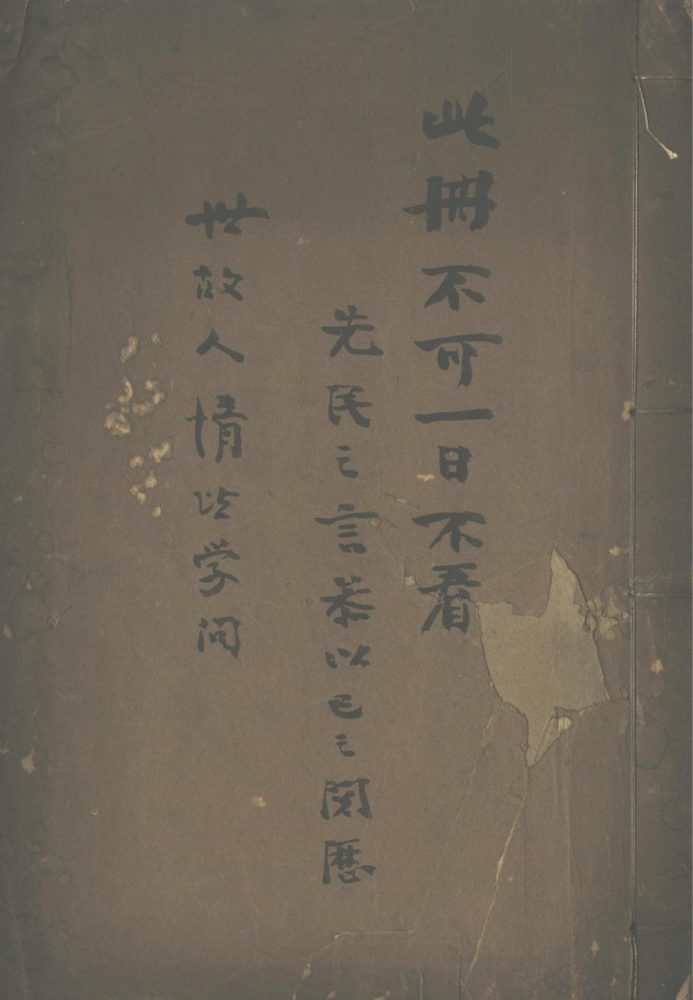 此冊不可一日不看
先民之言参以己之閱歷
世故人情以学问